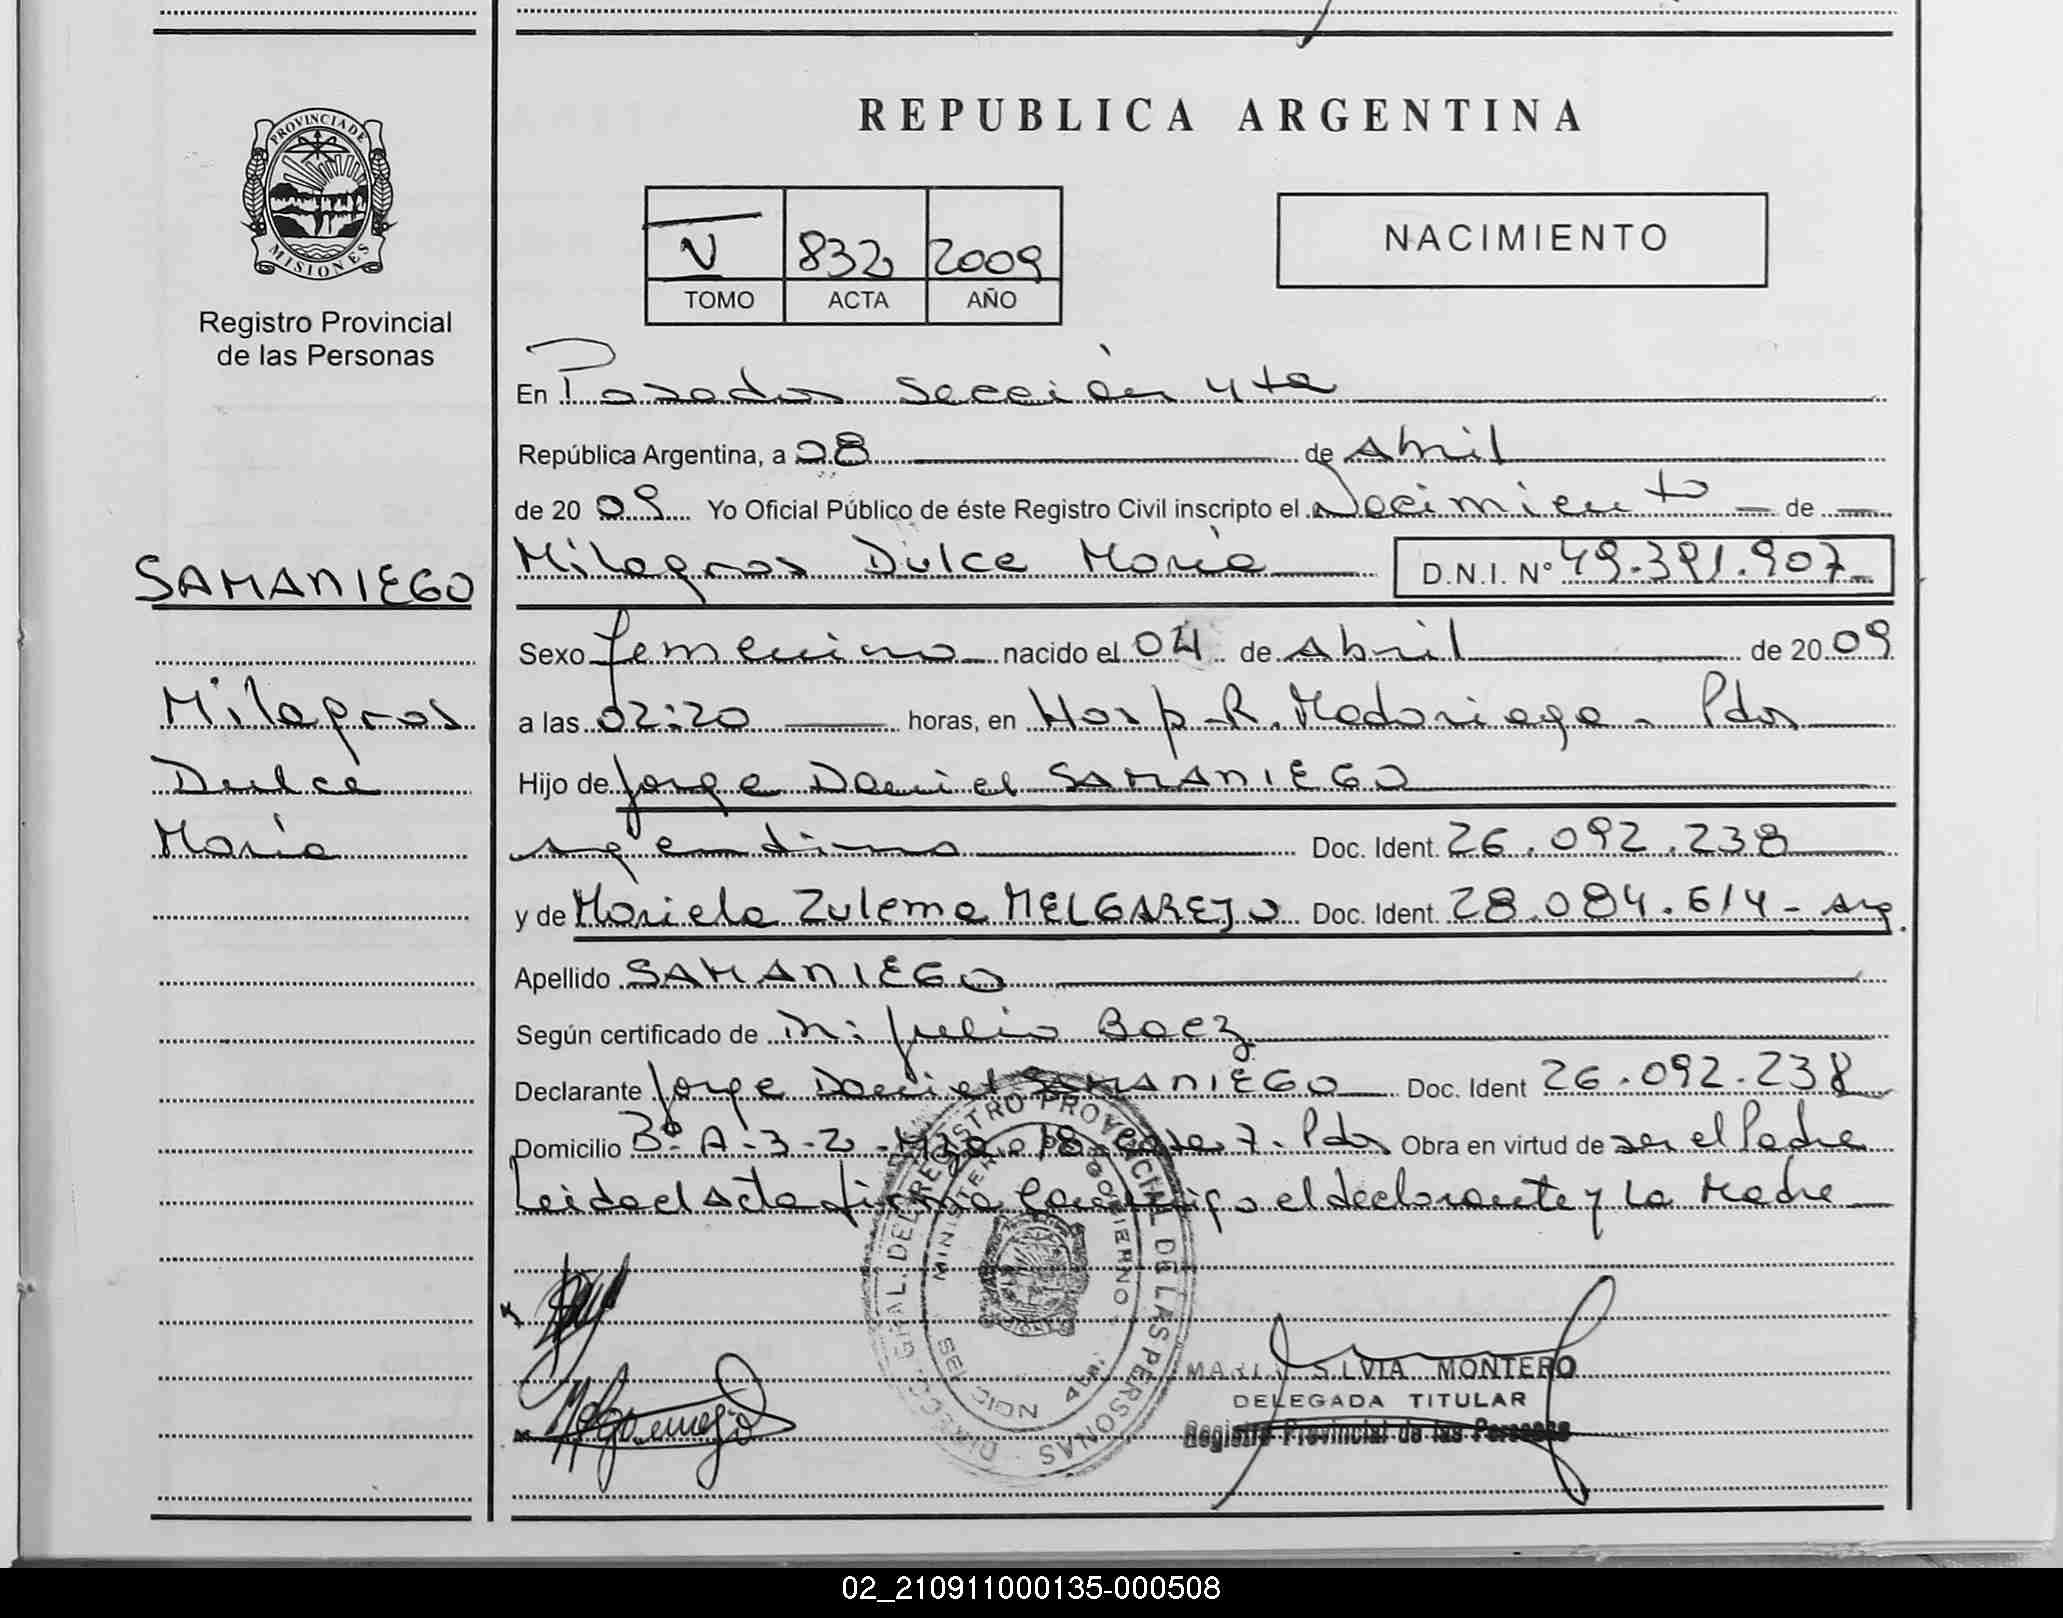 REPUBLICA ARGENTINA
PROVINCIA DE
MISIONES
Registro Provincial
de las Personas
V 832 2009
TOMO ACTA AÑO
NACIMIENTO
En Posadas sección 4ta
República Argentina, a 28 de Abril
de 2009 Yo Oficial Público de éste Registro Civil inscripto el Nacimiento - de -
SAMANIEGO
Milagros Dulce María D.N.I. Nº 49.391.907-
Sexo femenino nacido el 04 de Abril de 2009
Milagros
a las 02:20 horas, en Hosp. R. Madariaga - Pdas
Dulce
Hijo de Jorge Daniel SAMANIEGO
María
argentino Doc. Ident. 26.092.238
y de Mariela Zulema MELGAREJO Doc. Ident. 28.084.614 - arg.
Apellido SAMANIEGO
Según certificado de Dr: Julio Baez
Declarante Jorge Daniel SAMANIEGO Doc. Ident 26.092.238
Domicilio Bº A-3-2 - Mza. 18 - Casa 7 - Pdas Obra en virtud de ser el Padre
Leida el Acta firma conmigo el declarante y la Madre
DIRECC. GRAL. DEL REGISTRO PROVINCIAL DE LAS PERSONAS
MINISTERIO DE GOBIERNO
SECCION 4ta.
Melgarejo
MARIA SILVIA MONTERO
DELEGADA TITULAR
Registro Provincial de las Personas
02_210911000135-000508